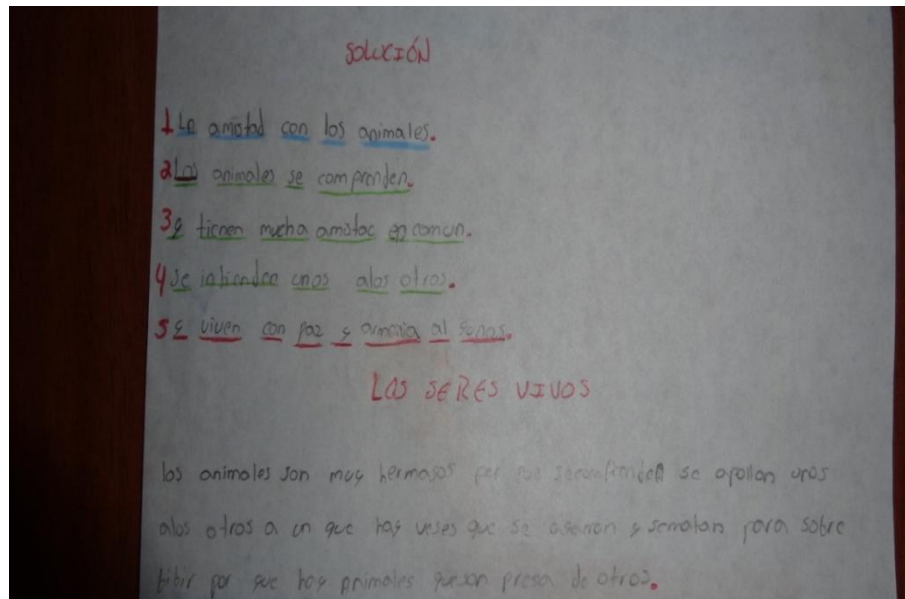 SOLUCIÓN
1 La amistad con los animales.
2 Los animales se comprenden.
3 y tienen mucha amistac en comun.
4 se intienden unos alos otros.
5 y viven con paz y armonia al
LOS SERES VIVOS
los animales son muy hermosos por que se apollan unos
alos otros a un que hay veses que se y sematan para sobre
bibir por que hay animales queson presa de otros.